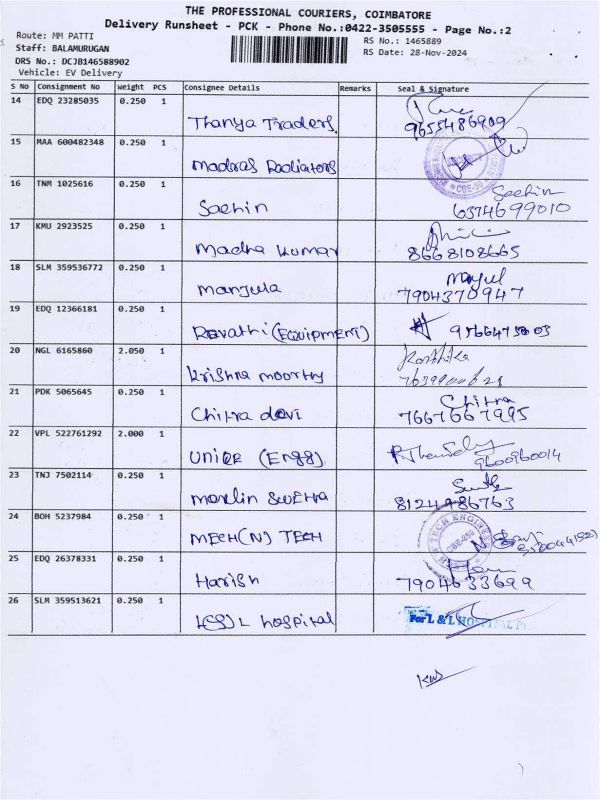 THE PROFESSIONAL COURIERS, COIMBATORE
Delivery Runsheet - PCK - Phone No.:0422-3505555 - Page No.:2
Route: MM PATTI
RS No.: 1465889
Staff: BALAMURUGAN
RS Date: 28-Nov-2024
DRS No.: DCJB146588902
Vehicle: EV Delivery
S No Consignment No Weight PCS Consignee Details Remarks Seal & Signature
14 EDQ 23285035 0.250 1
Thanya Traders. 9655486909
15 MAA 600482348 0.250 1
Madras Radiators
CBE-50
16 TNM 1025616 0.250 1
Sachin Sachin
6374699010
17 KMU 2923525 0.250 1
Madha kumar 8668108665
18 SLM 359536772 0.250 1
Manjula Manjul
7904370947
19 EDQ 12366181 0.250 1
Revathi (EQUIPMENT)
20 NGL 6165860 2.050 1
Krishna moorthy Karthika
21 PDK 5065645 0.250 1
Chitra devi Chitra
7667667995
22 VPL 522761292 2.000 1
UNIQE (Engg) 9600960014
23 TNJ 7502114 0.250 1
Marlin Swetha
8124986763
24 BOH 5237984 0.250 1
MECH(N) TECH
TECH ENGINEE
25 EDQ 26378331 0.250 1
Harish 7904633699
26 SLM 359513621 0.250 1
L(S)L hospital
For L & L HOSPITAL P